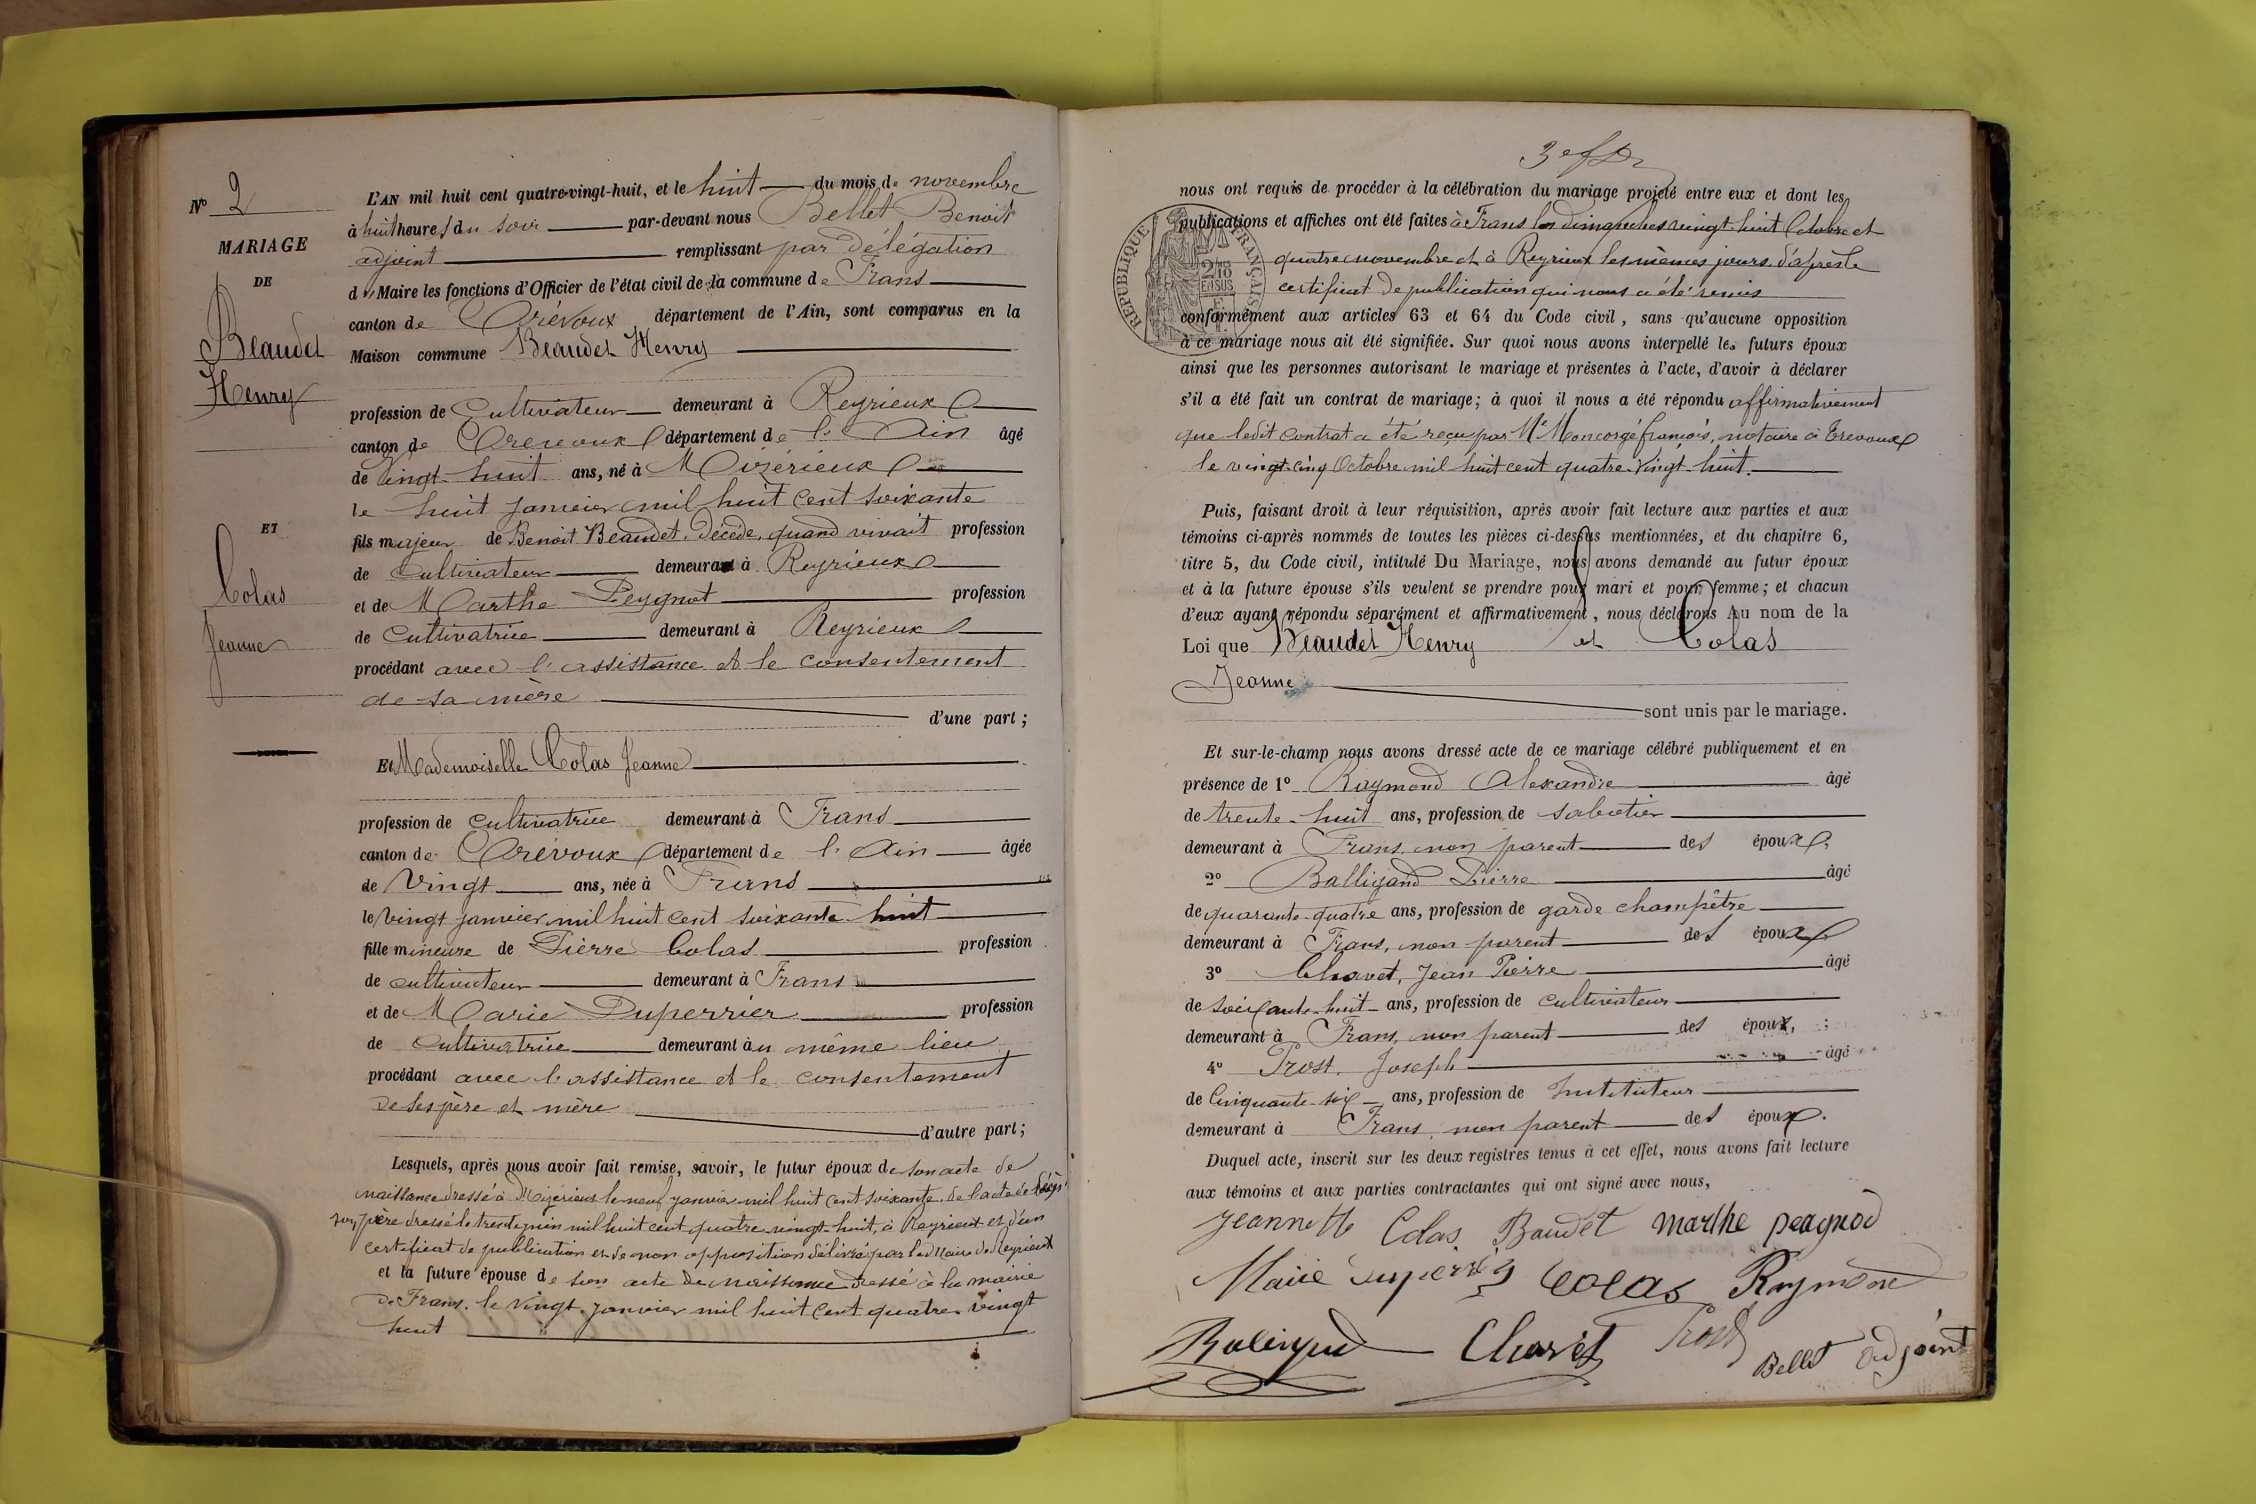 N° 2
MARIAGE
DE
Beaudet
Henry
ET
Colas
Jeanne
L'AN mil huit cent quatre-vingt-huit, et le huit du mois de novembre
à huit heures du soir par-devant nous Bellet Benoit
adjoint remplissant par délégation
du Maire les fonctions d'Officier de l'état civil de la commune de Frans
canton de Trévoux département de l'Ain, sont comparus en la
Maison commune Beaudet Henry
profession de Cultivateur demeurant à Reyrieux
canton de Trevoux département de l'Ain âgé
de vingt-huit ans, né à Mizérieux
le huit janvier mil huit cent soixante
fils majeur de Benoit Beaudet, décédé, quand vivait profession
de Cultivateur demeurant à Reyrieux
et de Marthe Peygnot profession
de Cultivatrice demeurant à Reyrieux
procédant avec l'assistance et le consentement
de sa mère
d'une part ;
Et Mademoiselle Colas Jeanne
profession de cultivatrice demeurant à Frans
canton de Trévoux département de l'Ain âgée
de vingt ans, née à Frans
le vingt janvier mil huit cent soixante huit
fille mineure de Pierre Colas profession
de cultivateur demeurant à Frans
et de Marie Duperrier profession
de Cultivatrice demeurant au même lieu
procédant avec l'assistance et le consentement
de ses père et mère
d'autre part ;
Lesquels, après nous avoir fait remise, savoir, le futur époux de son acte de
naissance dressé à Mizérieux le neuf janvier mil huit cent soixante, de l'acte de décès
son père dressé le trente juin mil huit cent quatre-vingt-huit, à Reyrieux et d'un
certificat de publication et de non opposition délivré par le Maire de Reyrieux
et la future épouse de son acte de naissance dressé à la mairie
de Frans, le vingt janvier mil huit cent quatre vingt
huit
nous ont requis de procéder à la célébration du mariage projeté entre eux et dont les
publications et affiches ont été faites à Frans les dimanches vingt-huit Octobre et
quatre novembre et à Reyrieux les mêmes jours d'après le
certificat de publication qui nous a été remis
RÉPUBLIQUE FRANÇAISE
conformément aux articles 63 et 64 du Code civil, sans qu'aucune opposition
à ce mariage nous ait été signifiée. Sur quoi nous avons interpellé les futurs époux
ainsi que les personnes autorisant le mariage et présentes à l'acte, d'avoir à déclarer
s'il a été fait un contrat de mariage ; à quoi il nous a été répondu affirmativement
que ledit contrat a été reçu par Me Moncorgé françois, notaire à Trevoux
le vingt-cinq Octobre mil huit cent quatre-vingt-huit.
Puis, faisant droit à leur réquisition, après avoir fait lecture aux parties et aux
témoins ci-après nommés de toutes les pièces ci-dessus mentionnées, et du chapitre 6,
titre 5, du Code civil, intitulé Du Mariage, nous avons demandé au futur époux
et à la future épouse s'ils veulent se prendre pour mari et pour femme ; et chacun
d'eux ayant répondu séparément et affirmativement, nous déclarons Au nom de la
Loi que Beaudet Henry et Colas
Jeanne
sont unis par le mariage.
Et sur-le-champ nous avons dressé acte de ce mariage célébré publiquement et en
présence de 1° Raymond Alexandre âgé
de trente-huit ans, profession de sabotier
demeurant à Frans, non parent des époux.
2° Balligand Pierre âgé
de quarante-quatre ans, profession de garde champêtre
demeurant à Frans, non parent des époux
3° Chavet, Jean Pierre âgé
de soixante-huit ans, profession de cultivateur
demeurant à Frans, non parent des époux, ;
4° Prost, Joseph âgé
de Cinquante-six ans, profession de Instituteur
demeurant à Frans, non parent des époux.
Duquel acte, inscrit sur les deux registres tenus à cet effet, nous avons fait lecture
aux témoins et aux parties contractantes qui ont signé avec nous,
Jeannette Colas Baudet marthe peagnod
Marie duperrier Colas Raymond
Baligand Chavet Prost
Bellet adjoint